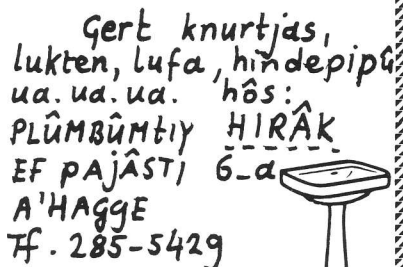 Gert knurtjas,
lukten, lufa, hîndepipû
ua. ua. ua. hôs:
PLÛMBÛMtiY HIRÂK
EF PAJÂSTI 6_a
A'HAGGE
Tf. 285-5429